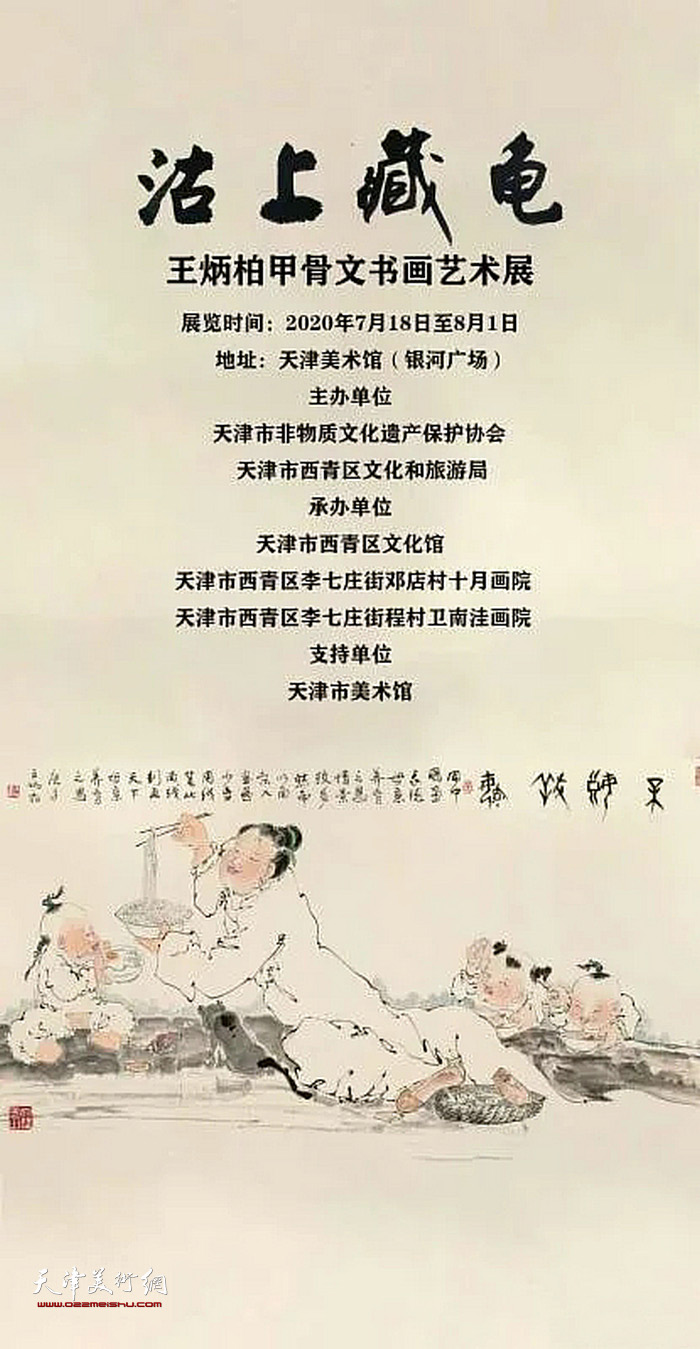 沽上藏龟
王炳柏甲骨文书画艺术展
展览时间：2020年7月18日至8月1日
地址：天津美术馆（银河广场）
主办单位
天津市非物质文化遗产保护协会
天津市西青区文化和旅游局
承办单位
天津市西青区文化馆
天津市西青区李七庄街邓店村十月画院
天津市西青区李七庄街程村卫南洼画院
支持单位
天津市美术馆
天津美術網
www.022meishu.com